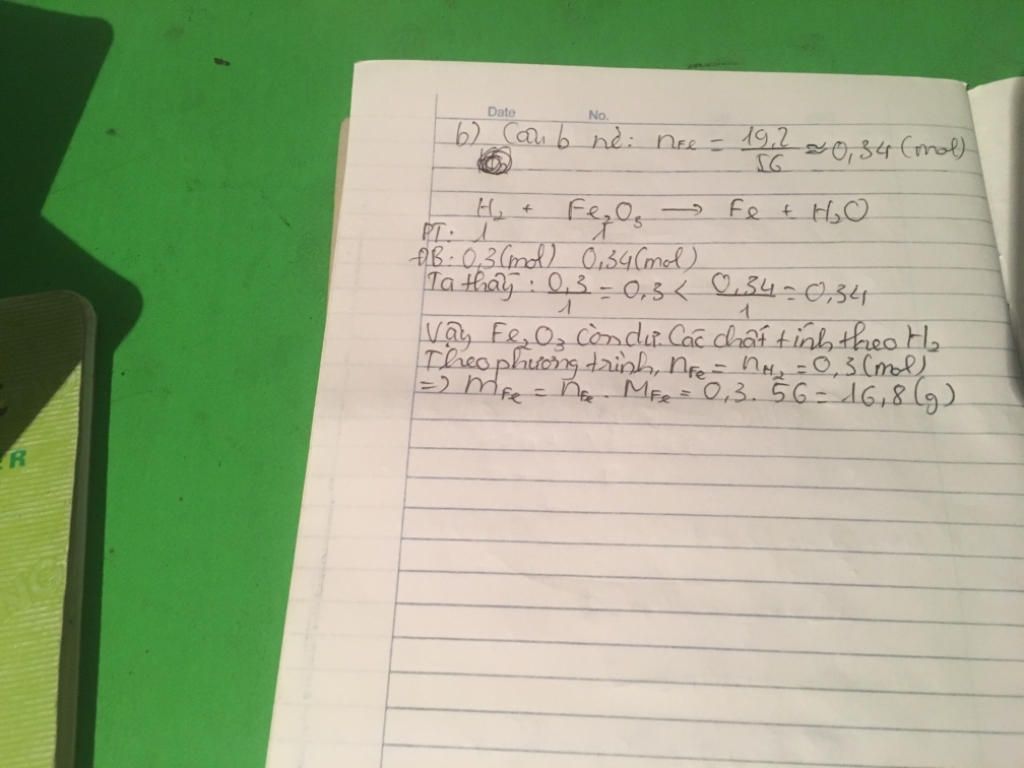 Date No.
b) Câu b nè: nFe = 19,2/56 ≈ 0,34 (mol)
H₂ + Fe₂O₃ → Fe + H₂O
PT: 1 1
ĐB: 0,3(mol) 0,34(mol)
Ta thấy: 0,3/1 = 0,3 < 0,34/1 = 0,34
Vậy Fe₂O₃ còn dư. Các chất tính theo H₂
Theo phương trình, nFe = nH₂ = 0,3 (mol)
=> mFe = nFe . MFe = 0,3 . 56 = 16,8 (g)